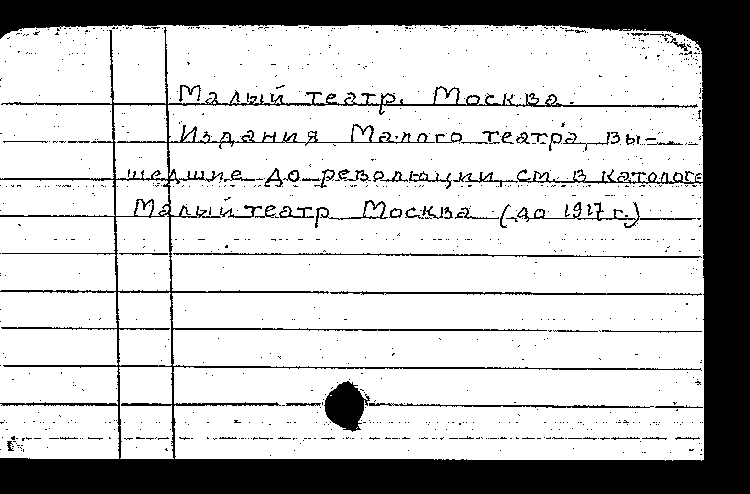 Малый театр. Москва.
Издания Малого театра, вы-
шедшие до революции, см. в каталоге
Малый театр Москва (до 1917 г.)